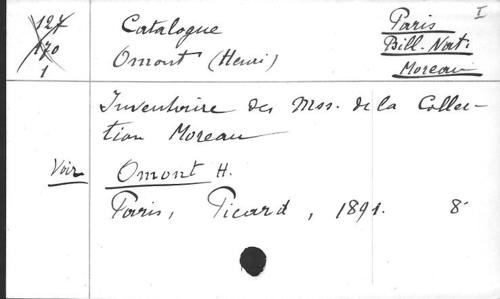 127
170
1
Catalogue
Omont (Henri)
Paris I
Bibl. Nat.
Moreau
Inventaire des Mss. de la Collec-
tion Moreau
Voir Omont H.
Paris, Picard, 1891. 8°